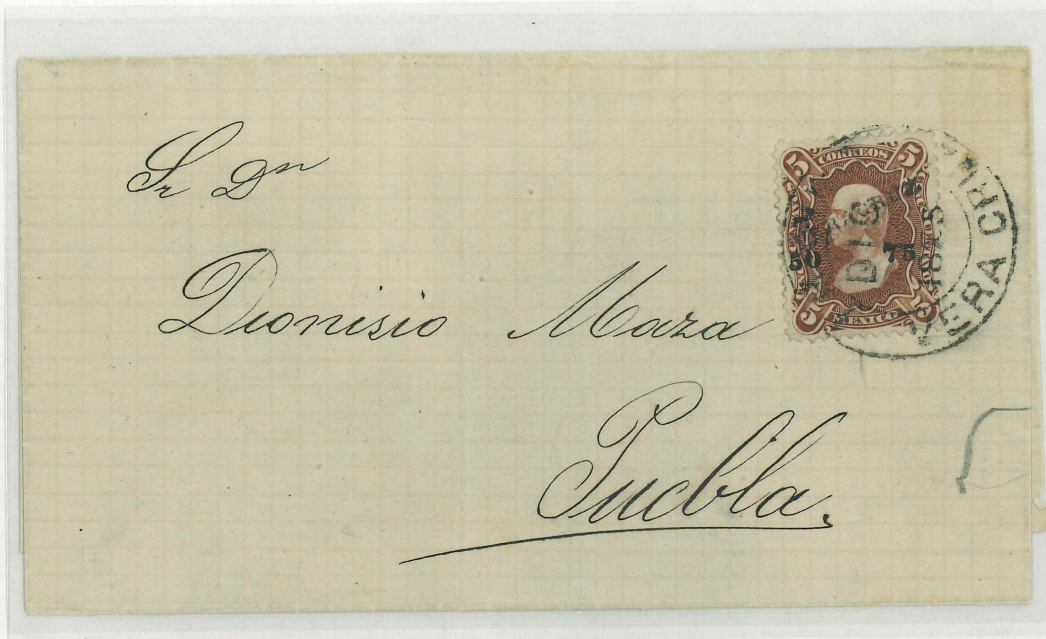 Sr Dn
Dionisio Maza
Puebla.
5 CORREOS 5
50 75
5 MEXICO 5
VERA CRUZ
DIC